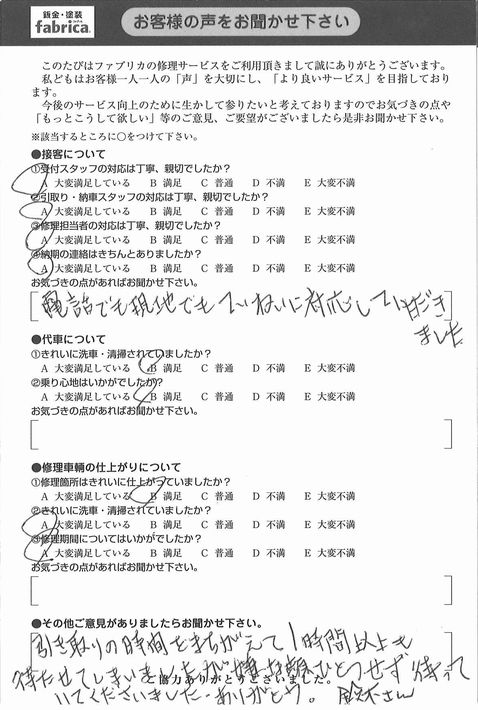 鈑金・塗装
fabrica.
お客様の声をお聞かせ下さい
このたびはファブリカの修理サービスをご利用頂きまして誠にありがとうございます。
私どもはお客様一人一人の「声」を大切にし、「より良いサービス」を目指しており
ます。
今後のサービス向上のために生かして参りたいと考えておりますのでお気づきの点や
「もっとこうして欲しい」等のご意見、ご要望がございましたら是非お聞かせ下さい。
※該当するところに○をつけて下さい。
●接客について
①受付スタッフの対応は丁寧、親切でしたか?
A 大変満足している B 満足 C 普通 D 不満 E 大変不満
②引取り・納車スタッフの対応は丁寧、親切でしたか?
A 大変満足している B 満足 C 普通 D 不満 E 大変不満
③修理担当者の対応は丁寧、親切でしたか?
A 大変満足している B 満足 C 普通 D 不満 E 大変不満
④納期の連絡はきちんとありましたか?
A 大変満足している B 満足 C 普通 D 不満 E 大変不満
お気づきの点があればお聞かせ下さい。
電話でも現地でもていねいに対応していただき
ました
●代車について
①きれいに洗車・清掃されていましたか?
A 大変満足している B 満足 C 普通 D 不満 E 大変不満
②乗り心地はいかがでしたか?
A 大変満足している B 満足 C 普通 D 不満 E 大変不満
お気づきの点があればお聞かせ下さい。
●修理車輌の仕上がりについて
①修理箇所はきれいに仕上がっていましたか?
A 大変満足している B 満足 C 普通 D 不満 E 大変不満
②きれいに洗車・清掃されていましたか?
A 大変満足している B 満足 C 普通 D 不満 E 大変不満
③修理期間についてはいかがでしたか?
A 大変満足している B 満足 C 普通 D 不満 E 大変不満
お気づきの点があればお聞かせ下さい。
●その他ご意見がありましたらお聞かせ下さい。
引き取りの時間をまちがえて1時間以上も
待たせてしまいましたが嫌な顔ひとつせず待って
ご協力ありがとうございました。
いてくださいました。ありがとう。 鈴木さん